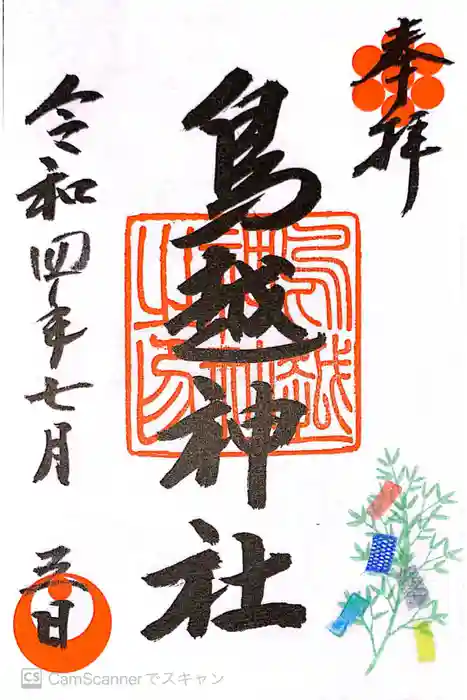 奉拝
鳥越神社
鳥越神社之印
令和四年七月
三日
CS CamScannerでスキャン